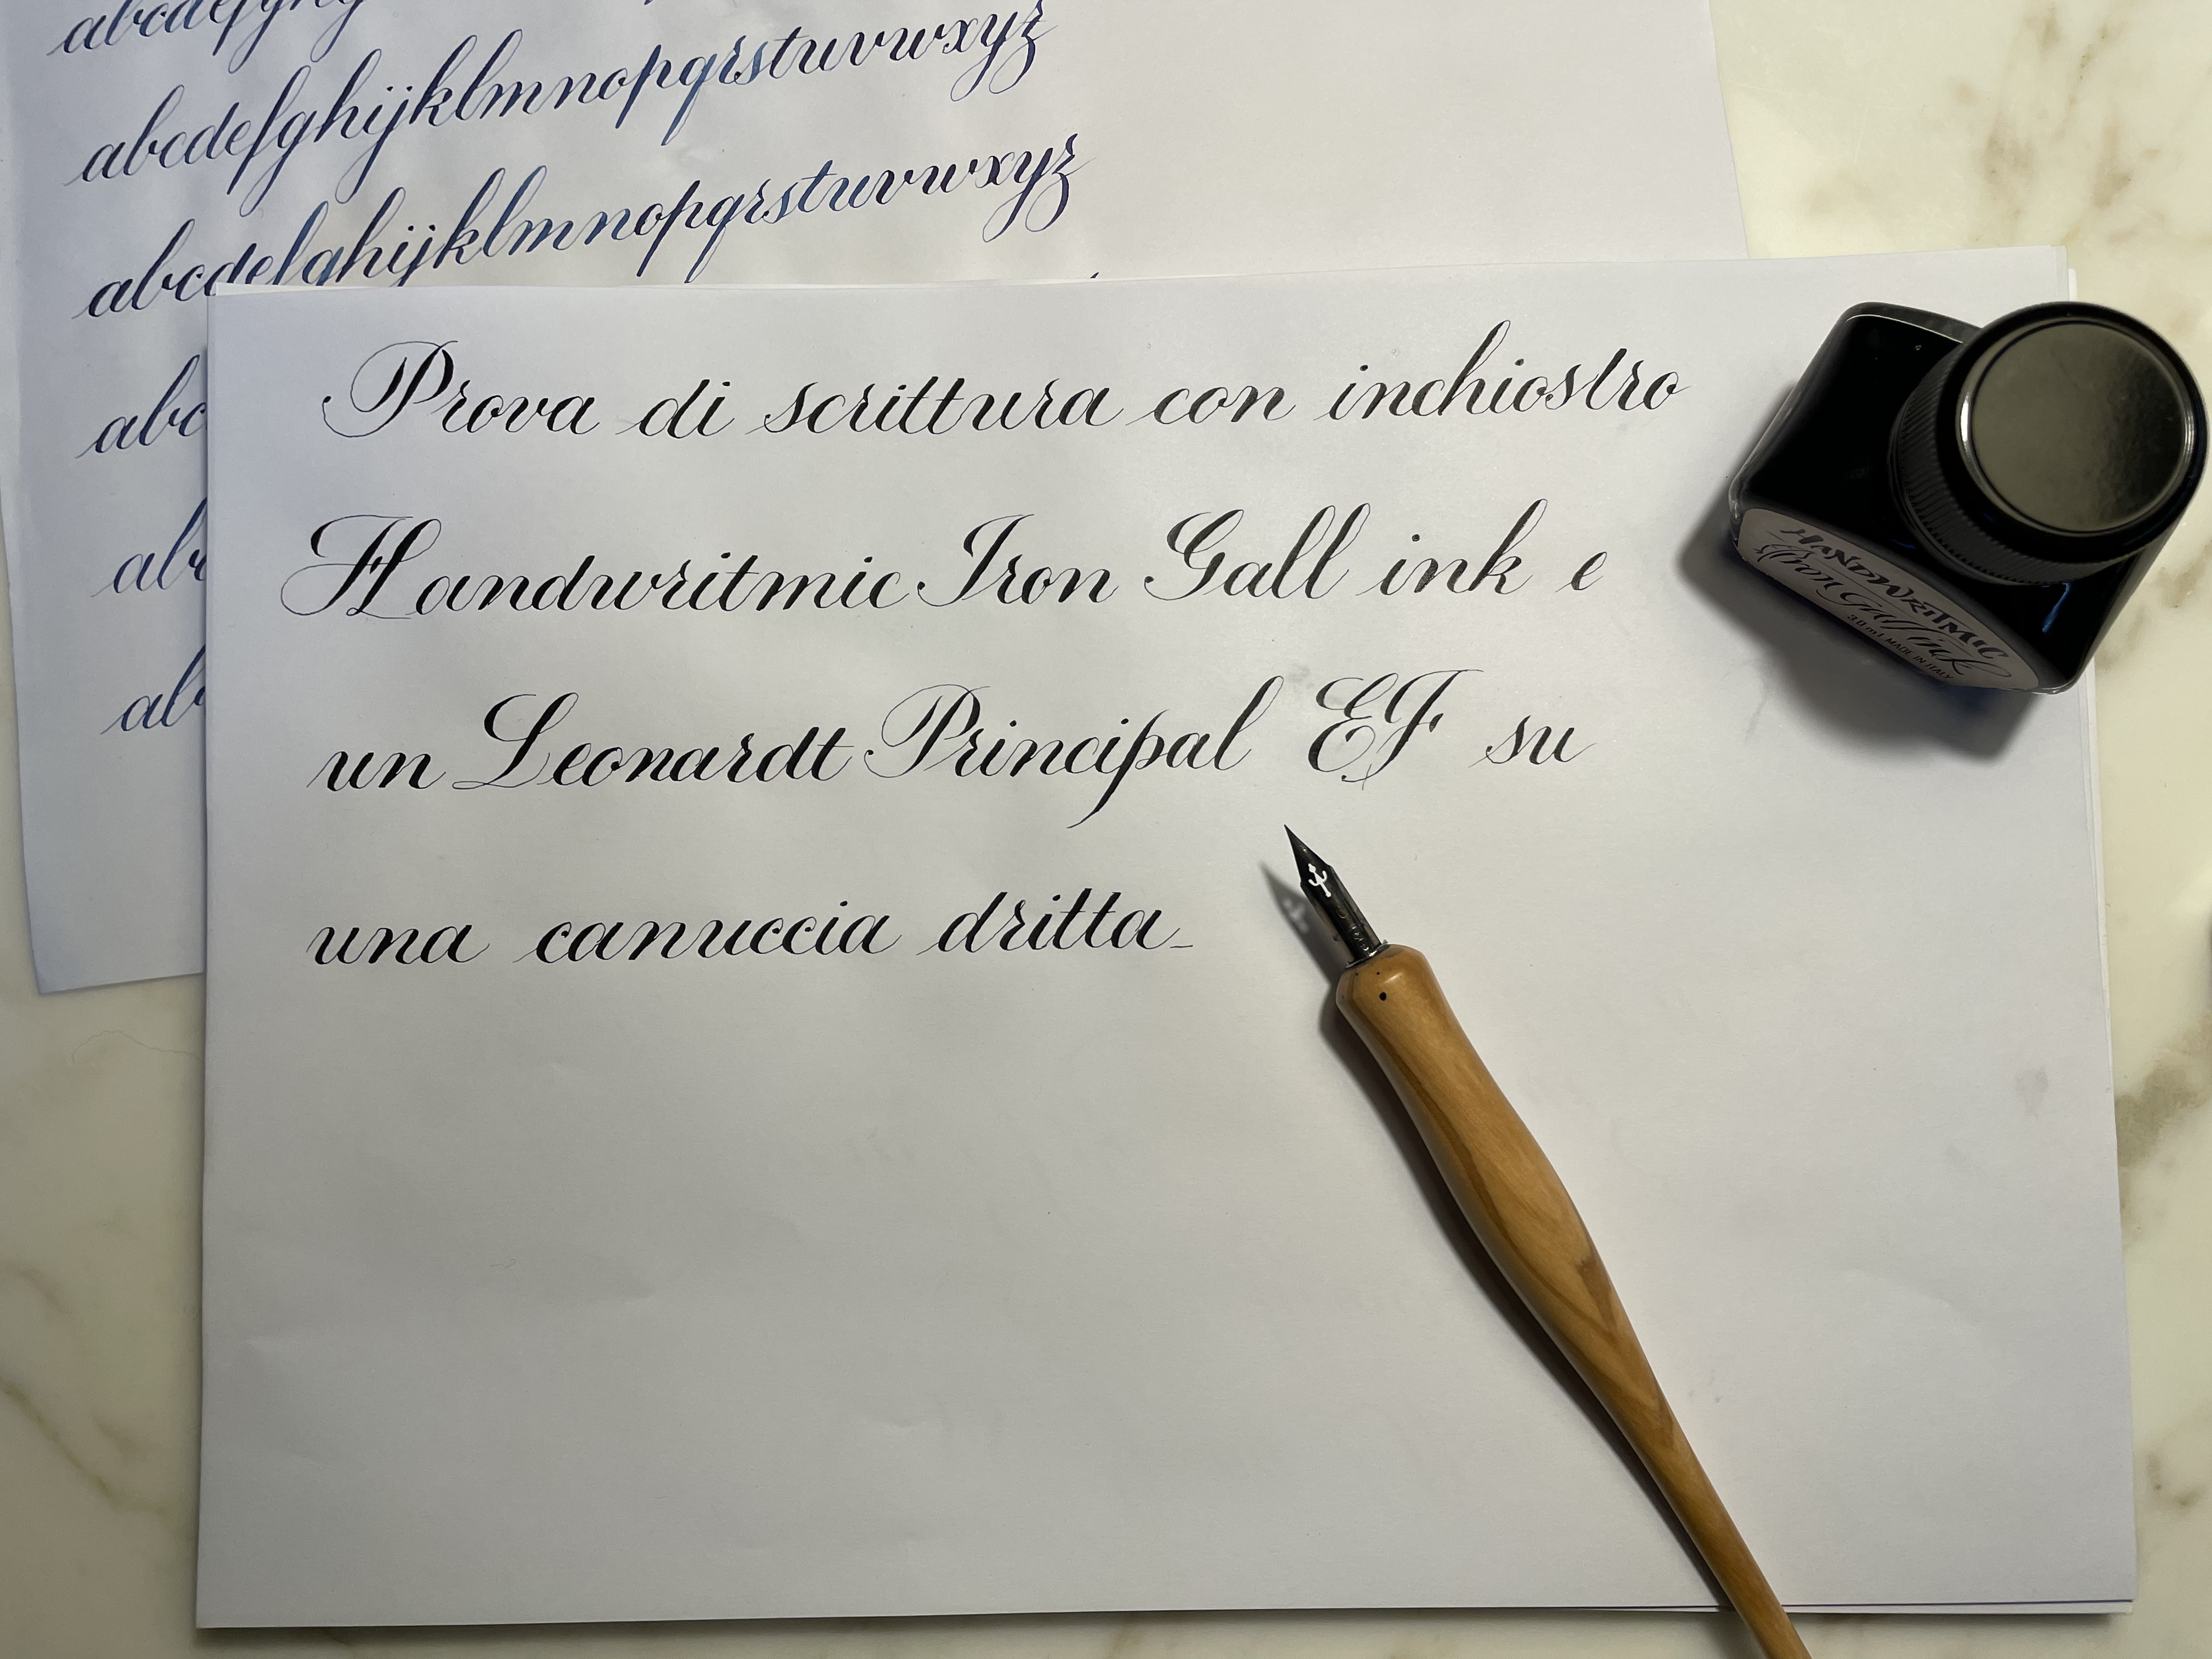 abcdefghijklmnopqrstuvwxyz
abcdefghijklmnopqrstuvwxyz
abc
abc
abc
Prova di scrittura con inchiostro
Handwritmic Iron Gall ink e
un Leonardt Principal EF su
una canuccia dritta
HANDWRITMIC
Iron Gall Ink
30ml MADE IN ITALY